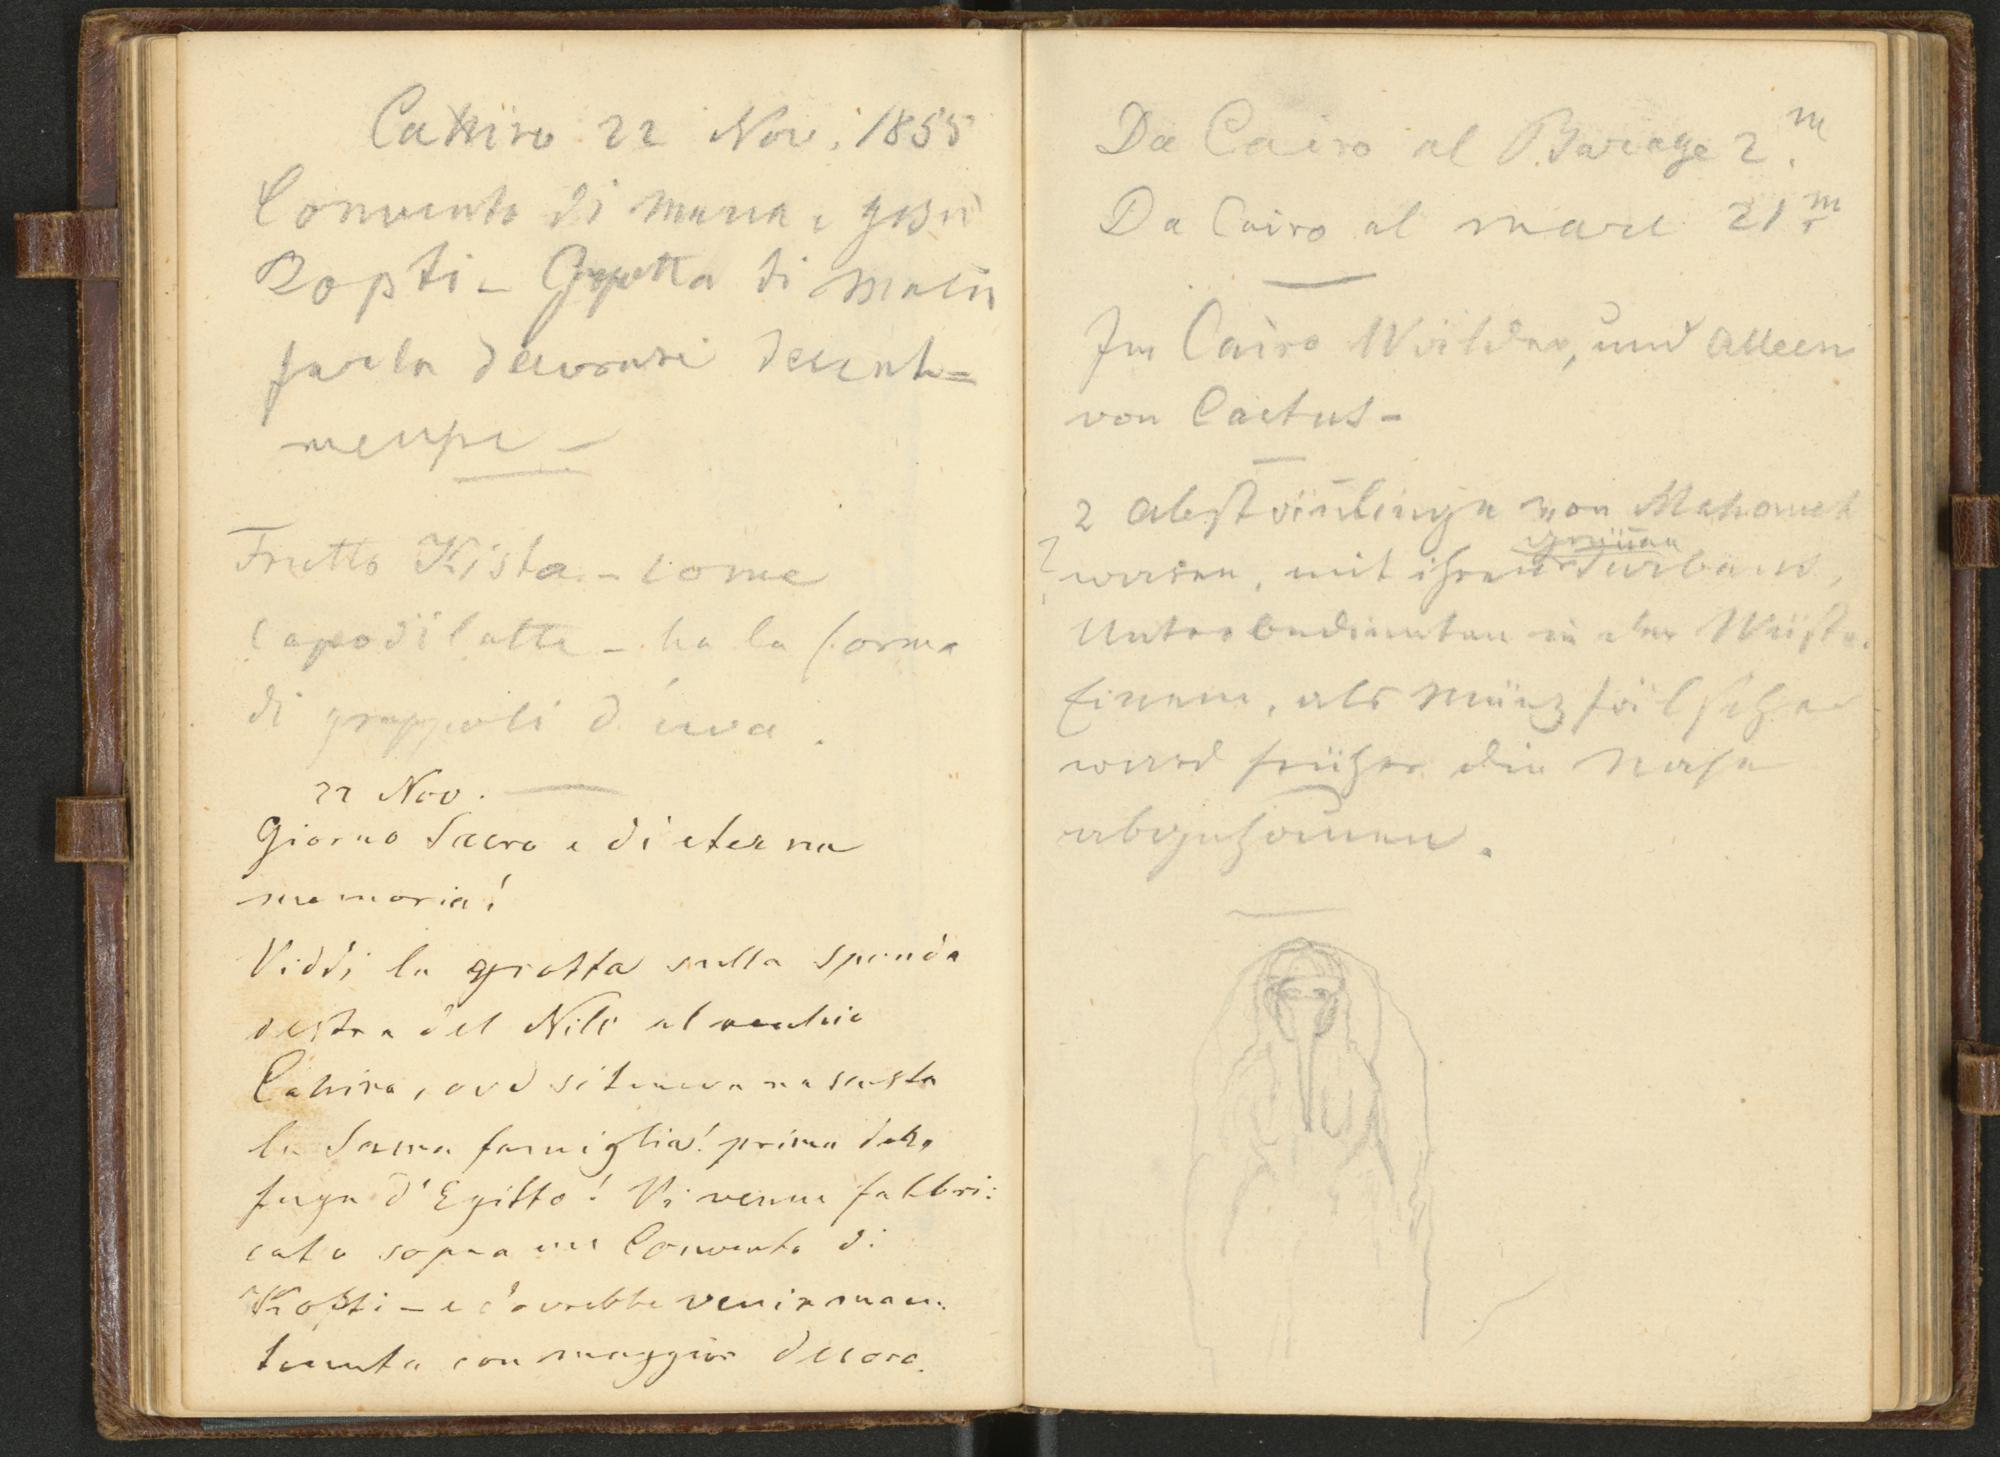 Cahiro 22 Nov. 1855
Convento di Maria e Gesù
Kopti - Grotta di
farla decorare decente=
mente -
Frutto Kista - come
capo di latte - ha la forma
di grappoli d'uva.
22 Nov.
Giorno Sacro e di eterna
memoria!
Viddi la grotta sulla sponda
destra del Nilo al vecchio
Cahira, ove si teneva nascosta
la Sacra famiglia! prima della
fuga d'Egitto! Vi venne fabbri:
cato sopra un Convento di
Kofti - e dovrebbe venir man:
tenuta con maggior decoro.
Da Cairo al Barage 2. m
Da Cairo al mare 21. m
Im Cairo Wälder, und Alleen
von Cactus -
2 Abstämlinge von Mahomet
waren, mit ihren grünen Turbans,
Unterbedienten in der Wüste.
Einem, als Münzfälscher
ward früher die Nase
abgehauen.